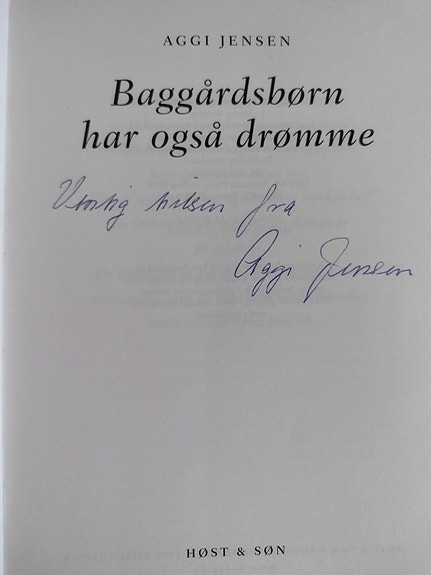 AGGI JENSEN
Baggårdsbørn
har også drømme
Venlig hilsen fra
Aggi Jensen
HØST & SØN